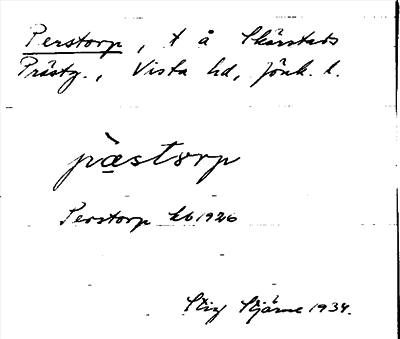 Perstorp, t å Skärstads
Prästg., Vista hd, Jönk. l.
pæ̀storp
Perstorp kb 1926
Stig Stjärne 1934.